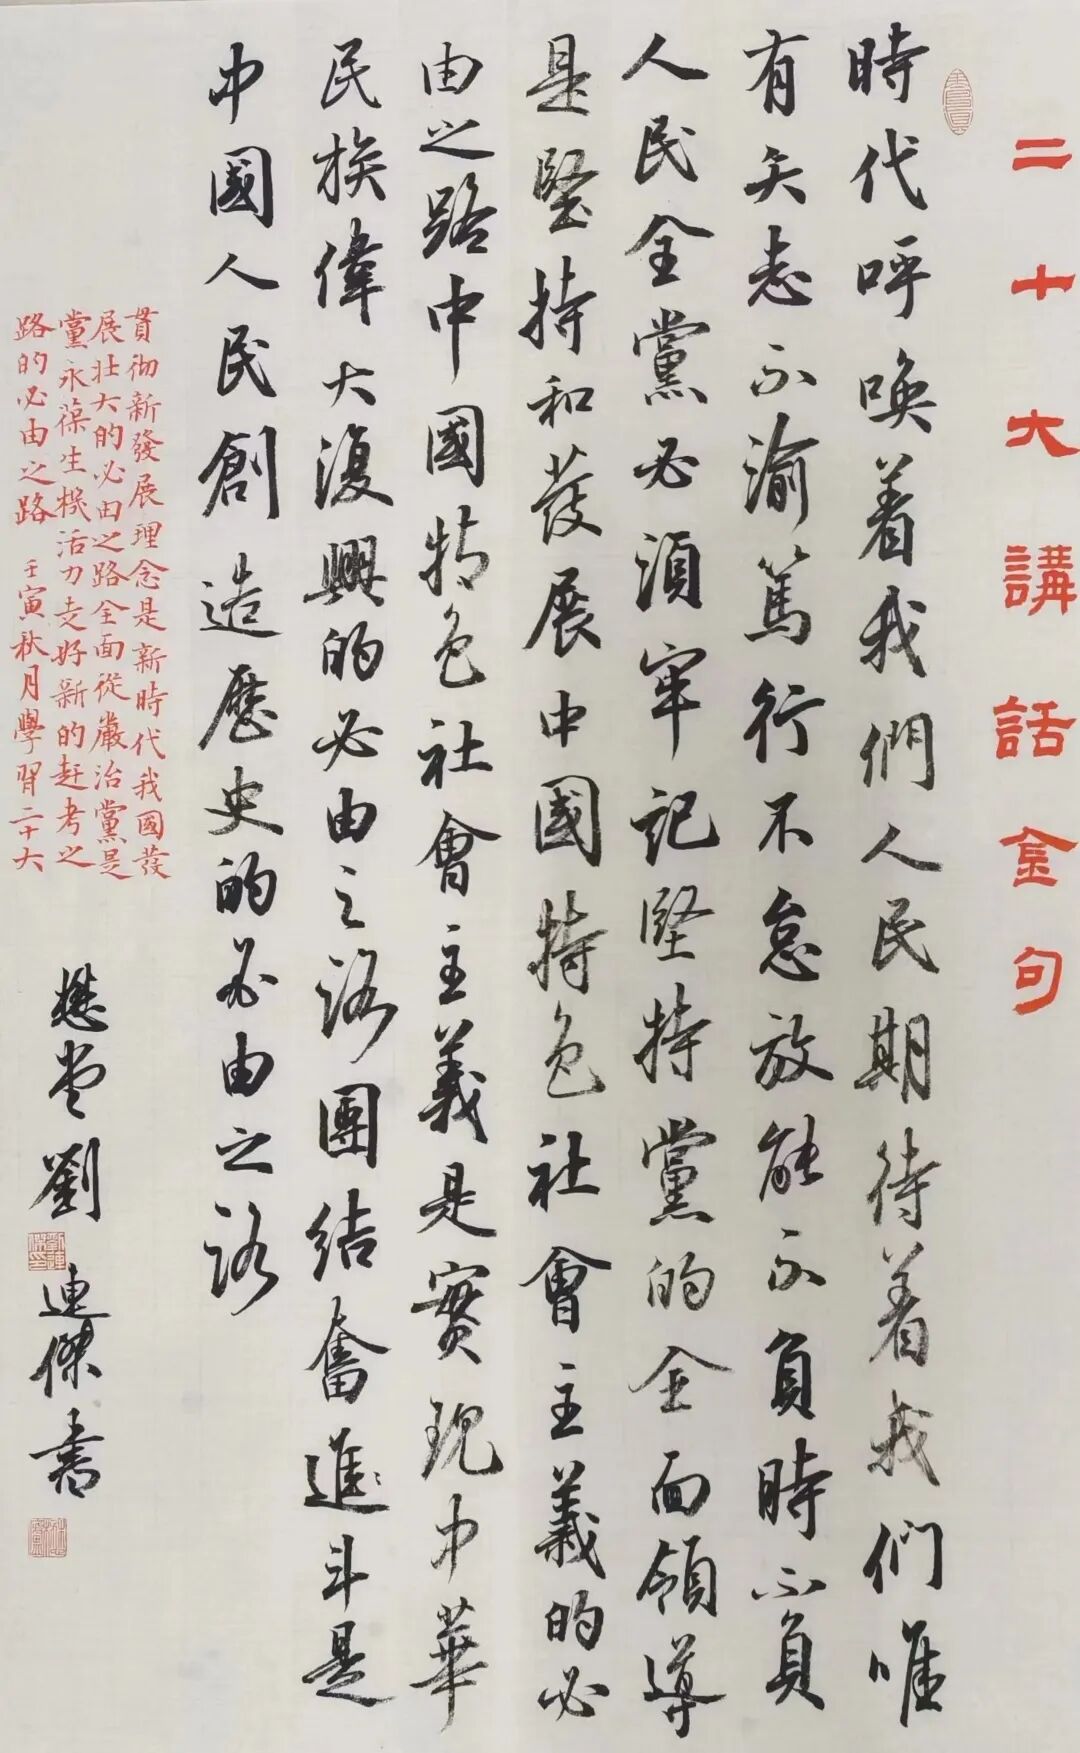 二十大講話金句
時代呼喚着我們人民期待着我们唯
有矢志不渝篤行不怠放能不負時不負
人民全黨必須牢記堅持黨的全面領導
是堅持和發展中國特色社會主義的必
由之路中國特色社會主義是實現中華
民族偉大復興的必由之路團結奮進斗是
中國人民創造歷史的必由之路
貫彻新發展理念是新時代我國發
展壮大的必由之路全面從嚴治黨是
黨永葆生機活力走好新的赶考之
路的必由之路 壬寅秋月學習二十大
懋堂劉連傑書